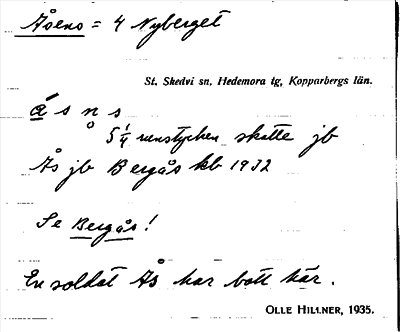 Åsens = 4 Nyberget
St. Skedvi sn, Hedemora tg, Kopparbergs län.
å s n s
5 1/4 runstycken skatte jb
Ås jb Bergås kb 1932
Se Bergås!
En soldat Ås har bott här.
OLLE HILLNER, 1935.